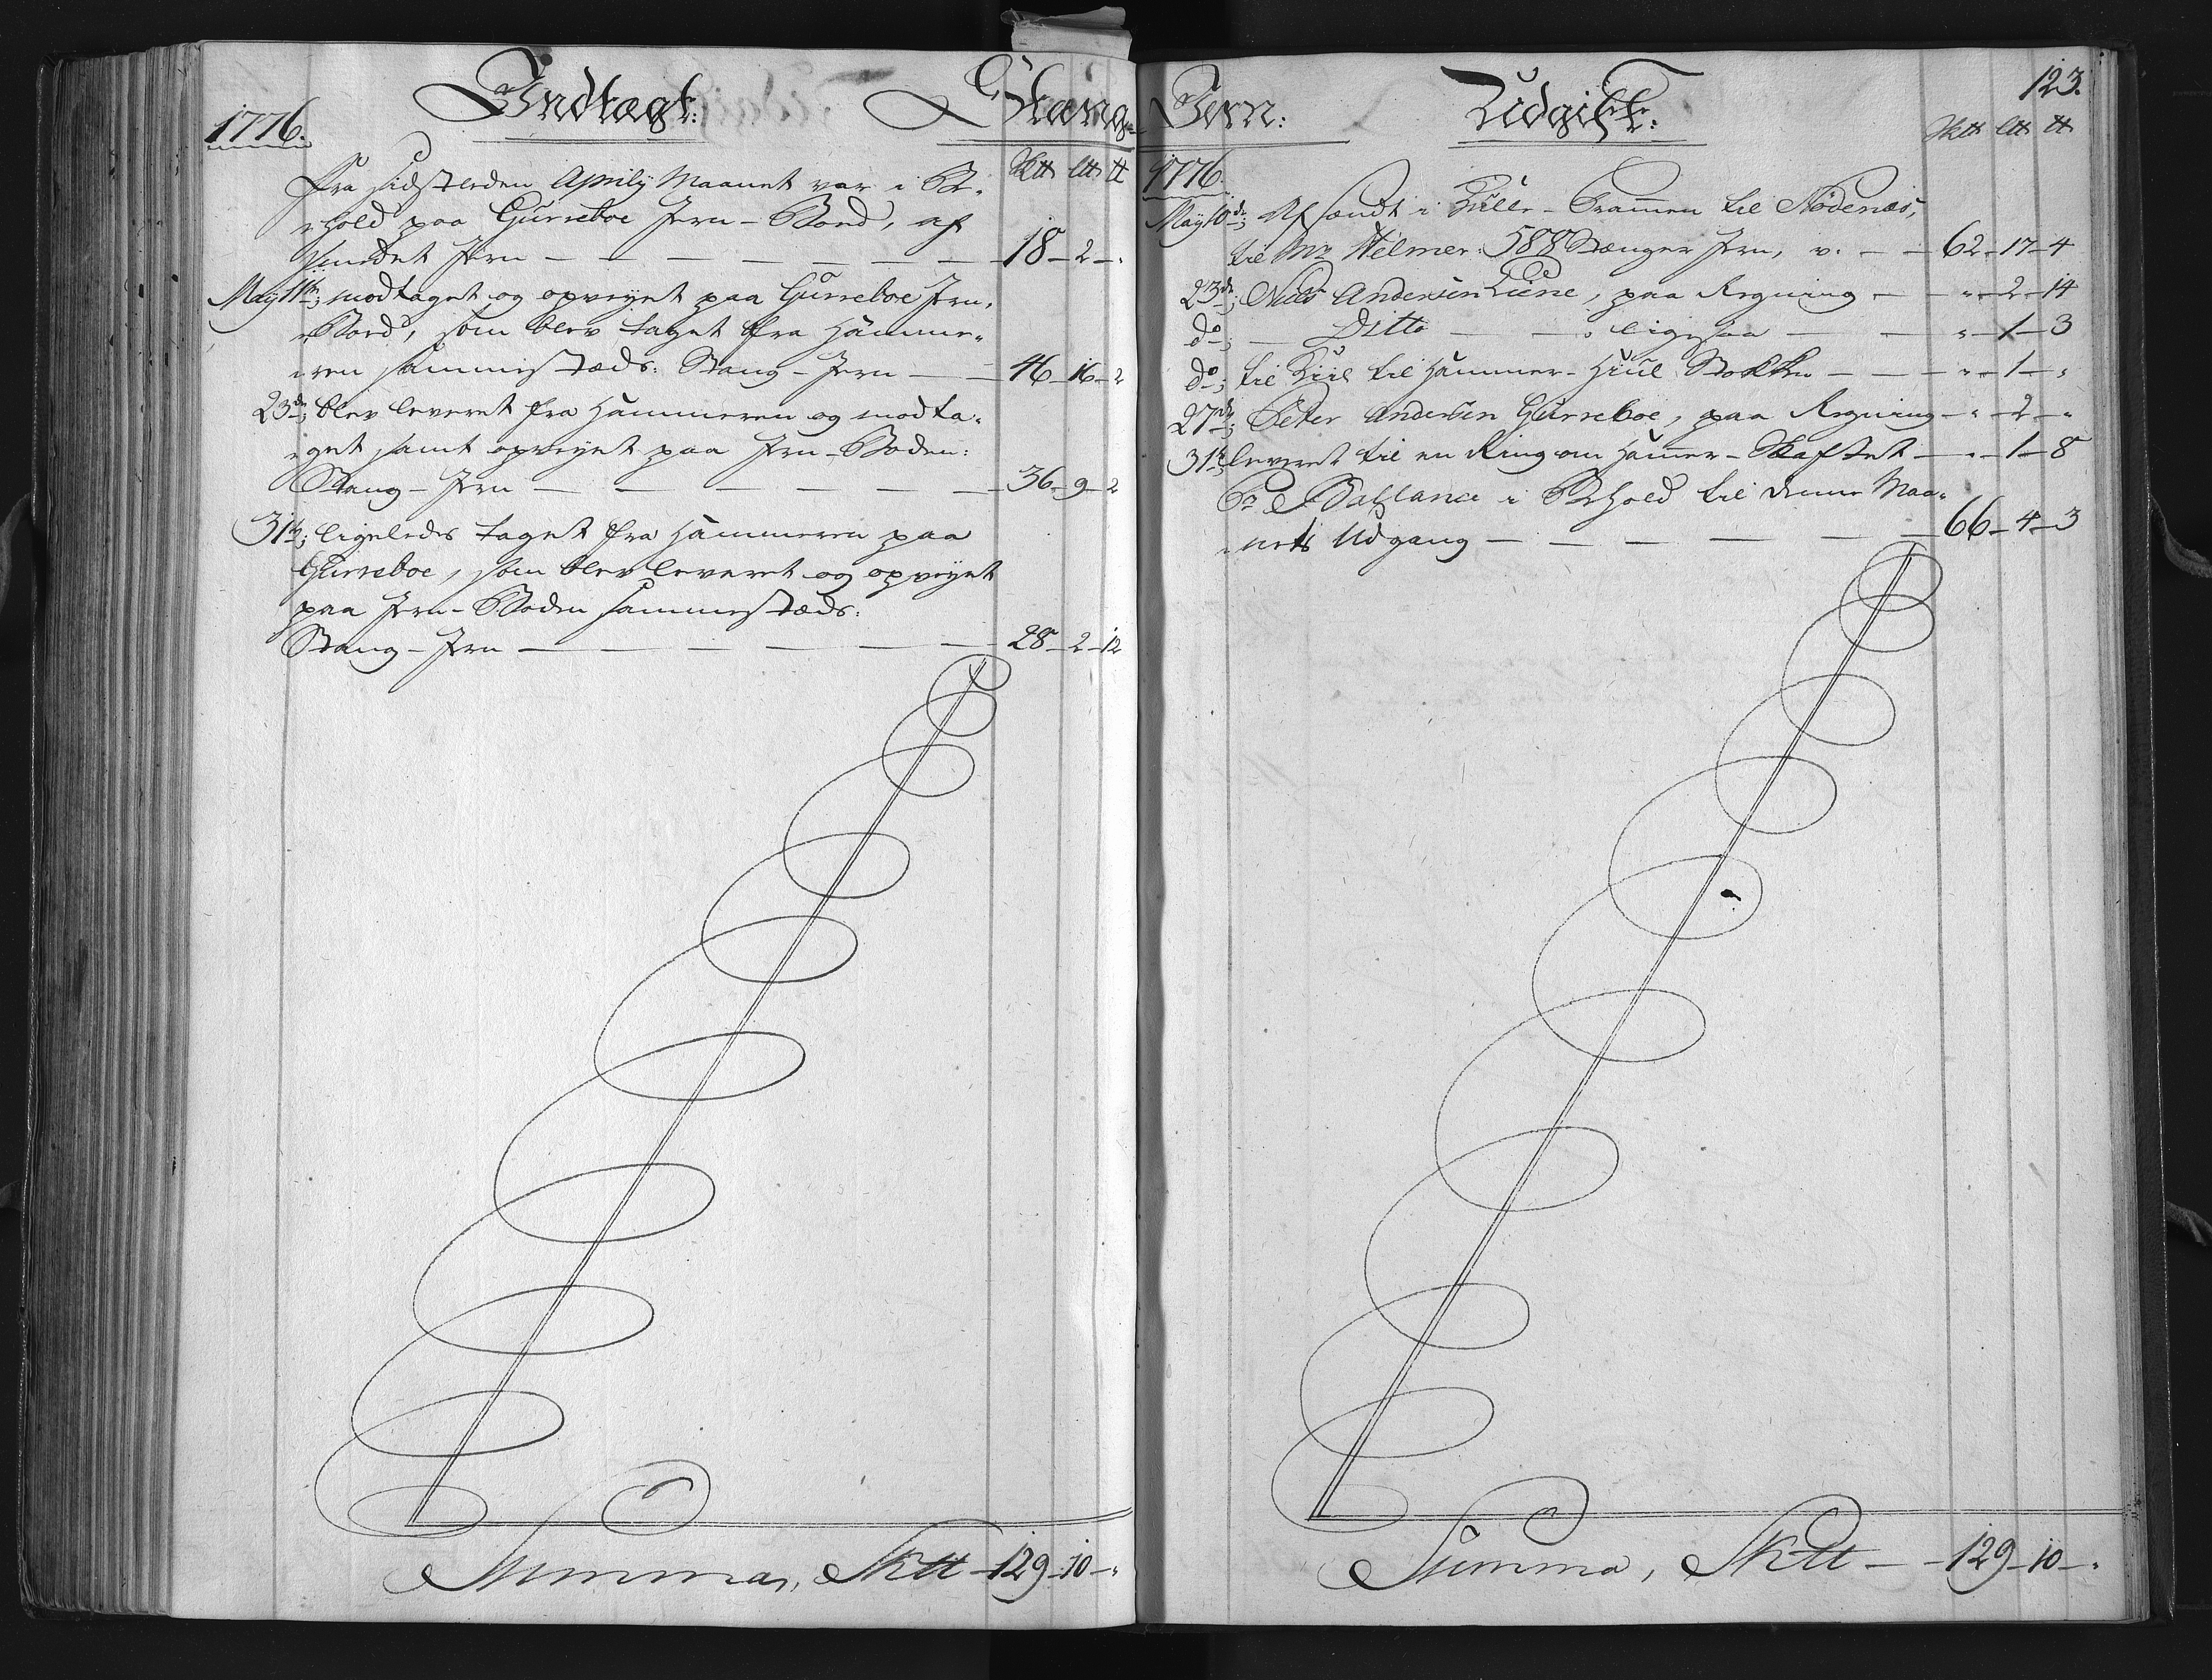 1776. Indtægt: Stang-
Sktt Ltt tt
Fra sidstleden Aprily Maanet var i Be-
hold paa Gurreboe Jern-Boed, af
smedet Jern — 18 — 2 — "
May 11te; modtaget og opveyet paa Gurreboe Jern-
Boed, som blev taget fra Hamme-
ren sammestæds: Stang-Jern — 46 — 16 — 2
23de; blev leveret fra Hammeren og modta-
get samt opveyet paa Jern-Boden:
Stang-Jern — 36 — 9 — 2
31te; ligeledes taget fra Hammeren paa
Gurreboe, som blev leveret og opveyet
paa Jern-Boden sammestæds:
Stang-Jern — 28 — 2 — 12
Summa, Sktt — 129 — 10 — "
Jern: Udgift: 123.
Sktt Ltt tt
1776.
May 10de; Afsendt i Prammen til Nedenæs,
til Mr Hilmer: 588 Stænger Jern, v. — 62 — 17 — 4
23de; Niels Andersen Liene, paa Regning — " — 2 — 14
do; — Ditto — ligesaa — " — 1 — 3
do; til til Hammer-Hiul Stokken — " — 1 — "
27de; Peter Andersen Gurreboe, paa Regning — " — 2 — "
31te; leveret til en Ring om Hammer-Skaftet — " — 1 — 8
Pr Ballance i Behold til denne Maa-
nets Udgang — 66 — 4 — 3
Summa, Sktt — 129 — 10 — "